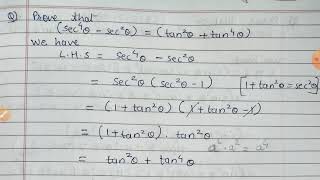 Q Prove that
(sec⁴θ - sec²θ) = (tan²θ + tan⁴θ)
we have
L.H.S = sec⁴θ - sec²θ
= sec²θ (sec²θ - 1) [1+tan²θ = sec²θ]
= (1+tan²θ) (1+tan²θ-1)
= (1+tan²θ) . tan²θ
a² . a² = a⁴
= tan²θ + tan⁴θ